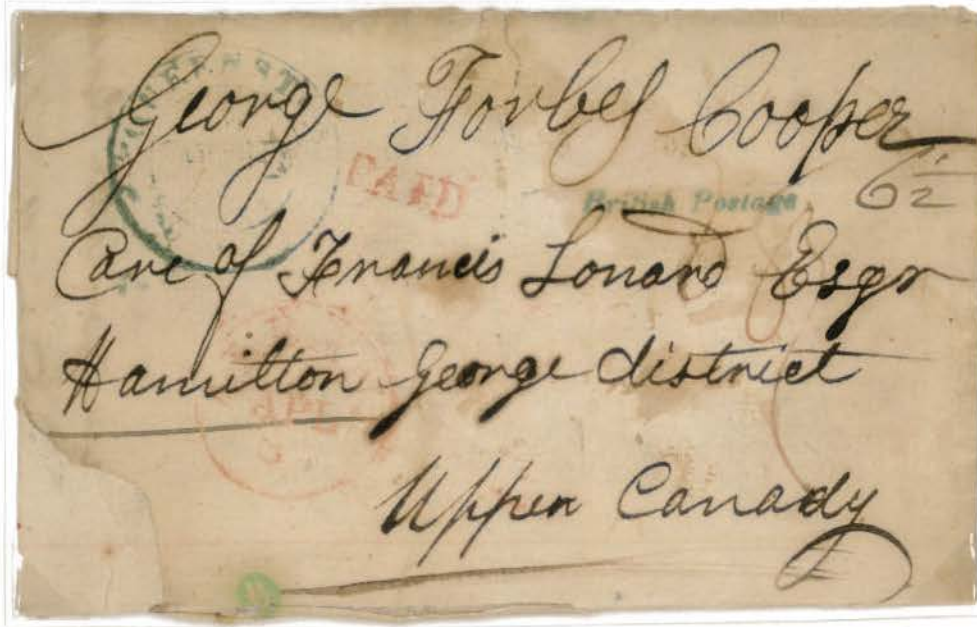 George Forbes Cooper
PAID
British Postage
6 1/2
Care of Francis Lonard Esqr
Hamilton George district
Upper Canady